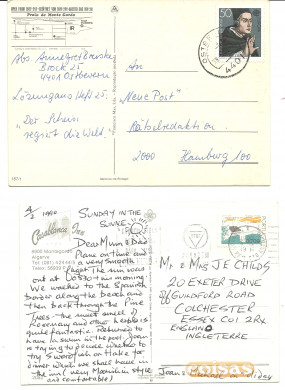 Praia de Monte Gordo
Abs
Brock 25
4401 Ostbevern
Lösungans Heft 25:
"Der Schein
regiert die Welt."
An
"Neue Post"
Rätselredaktion
2000 Hamburg 100
50
4/2 1990
SUNDAY IN THE
SUNNE
Casablanca Inn
8900 Monte Gordo
Algarve
Dear Mum & Dad
Plane on time and
a very smooth
flight. The sun was
out at this morning.
We walked to the Spanish
border along the beach and
then back through the Pine
Trees - the sweet smell of
Rosemary and other herbs is
quite fantastic. Returned to
have a swim in the pool. Joan
is trying to decide whether to
try Swordfish or Hake for
dinner which we shall have in
the inn (very Moorish in style
and comfortable)
Mr & Mrs JE CHILDS
20 EXETER DRIVE
off GUILDFORD ROAD
COLCHESTER
ESSEX CO1 2RX
ENGLAND
INGLETERRE
Joan